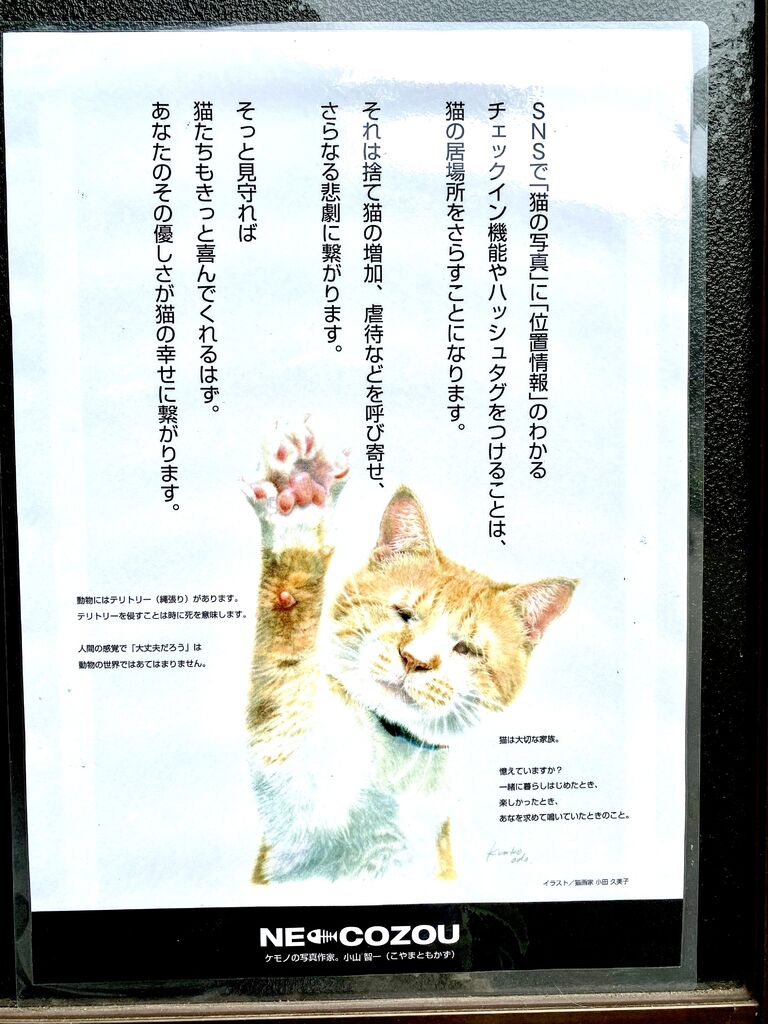 SNSで「猫の写真」に「位置情報」のわかる
チェックイン機能やハッシュタグをつけることは、
猫の居場所をさらすことになります。
それは捨て猫の増加、虐待などを呼び寄せ、
さらなる悲劇に繋がります。
そっと見守れば
猫たちもきっと喜んでくれるはず。
あなたのその優しさが猫の幸せに繋がります。
動物にはテリトリー（縄張り）があります。
テリトリーを侵すことは時に死を意味します。
人間の感覚で「大丈夫だろう」は
動物の世界ではあてはまりません。
猫は大切な家族。
憶えていますか？
一緒に暮らしはじめたとき、
楽しかったとき、
あなを求めて鳴いていたときのこと。
イラスト／猫画家 小田 久美子
NE COZOU
ケモノの写真作家。小山 智一（こやまともかず）